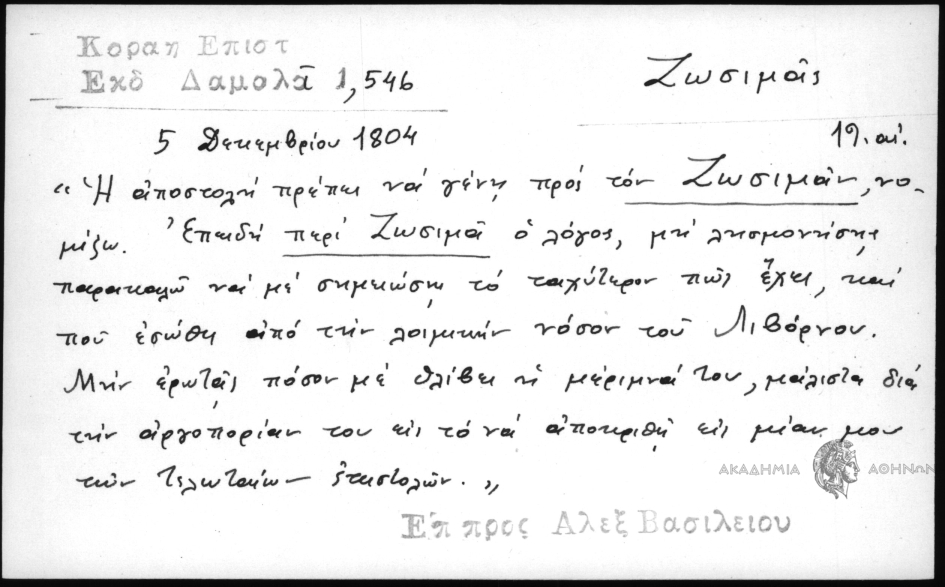 Κοραη Επιστ
Εκδ Δαμαλᾶ 1, 546
Ζωσιμᾶς
5 Δεκεμβρίου 1804
19. αἰ.
“Ἡ ἀποστολή πρέπει νά γένῃ πρός τόν Ζωσιμᾶν, νο-
μίζω. Ἐπειδή περί Ζωσιμᾶ ὁ λόγος, μή λησμονήσῃς
παρακαλῶ νά μέ σημειώσῃς τό ταχύτερον πῶς ἔχει, καί
ποῦ ἐσώθη ἀπό τήν λοιμικήν νόσον τοῦ Λιβόρνου.
Μήν ἐρωτᾷς πόσον μέ θλίβει ἡ μέριμνά του, μάλιστα διά
τήν ἀργοπορίαν του εἰς τό νά ἀποκριθῇ εἰς μίαν μου
τῶν τελευταίων ἐπιστολῶν.„
ΑΚΑΔΗΜΙΑ ΑΘΗΝΩΝ
Επ προς Αλεξ Βασιλειου